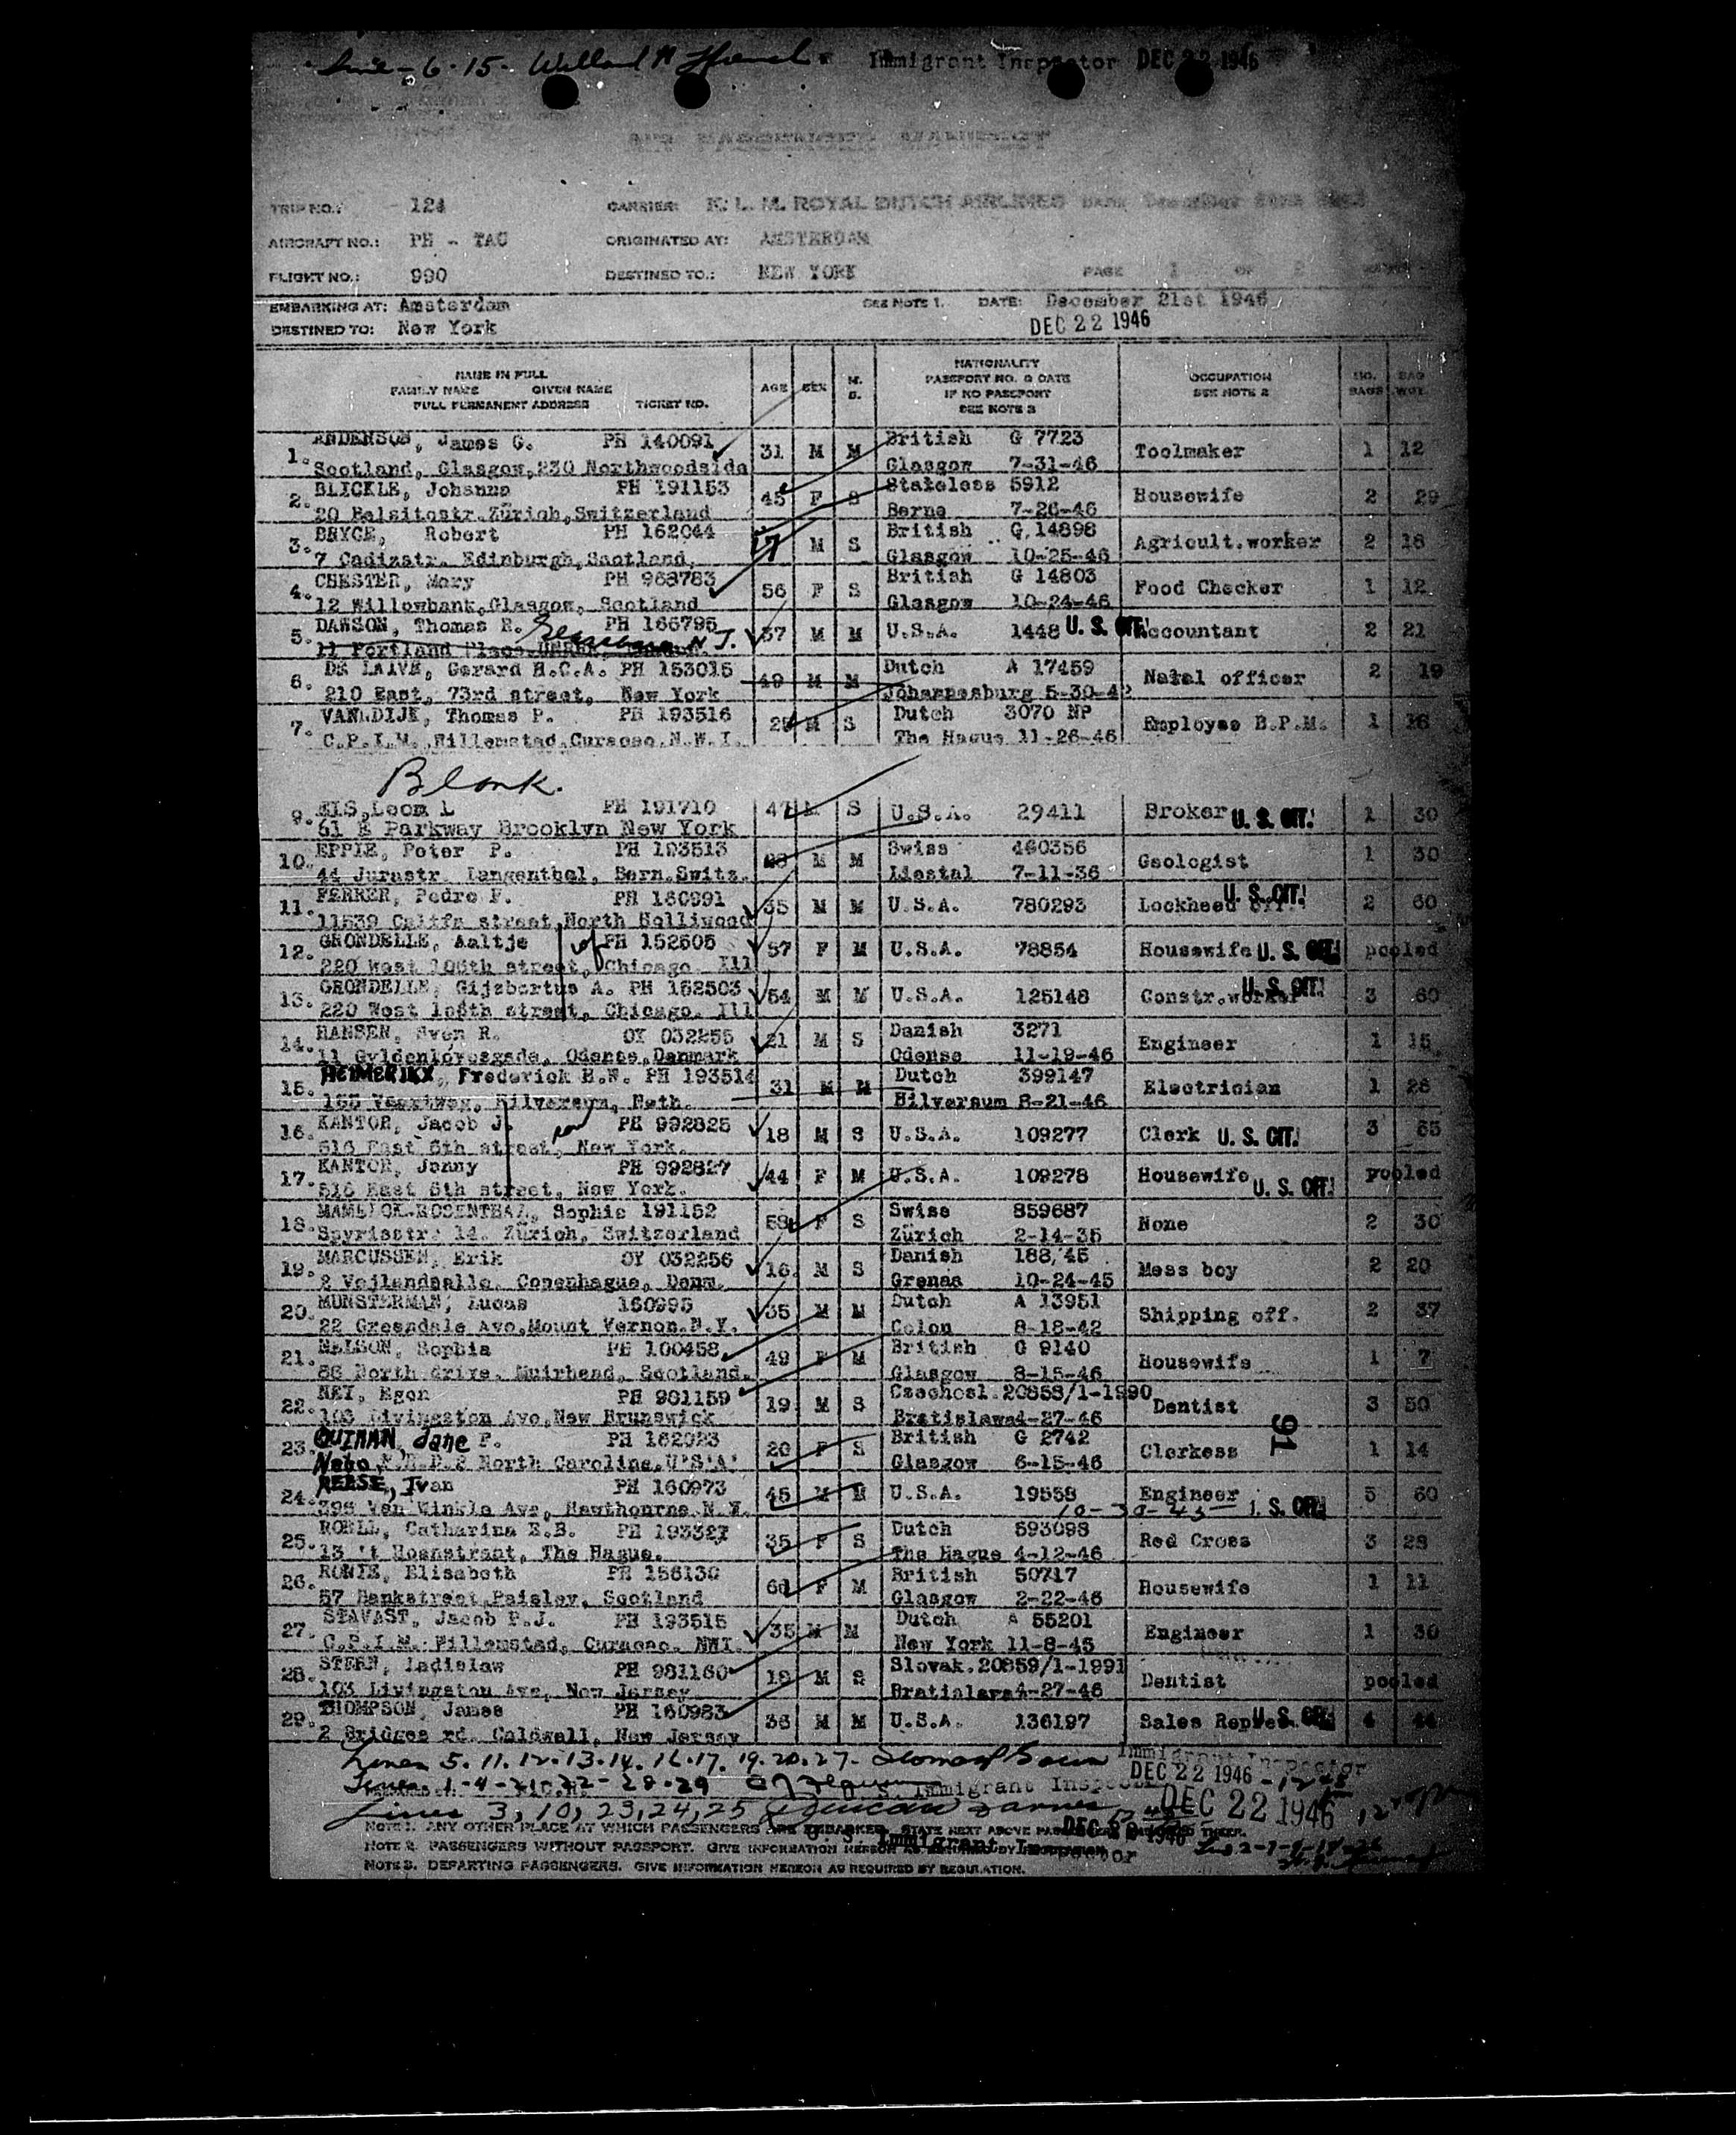 6-15- Immigrant Inspector DEC 22 1946
AIR PASSENGER MANIFEST
TRIP NO.: 124 CARRIER: K. L. M. ROYAL DUTCH AIRLINES
AIRCRAFT NO.: PH - TAU ORIGINATED AT: AMSTERDAM
FLIGHT NO.: 990 DESTINED TO.: NEW YORK PAGE 1 OF
EMBARKING AT: Amsterdam SEE NOTE 1. DATE: December 21st 1946
DESTINED TO: New York DEC 22 1946
NAME IN FULL
FAMILY NAME GIVEN NAME
FULL PERMANENT ADDRESS TICKET NO.
AGE SEX M. S.
NATIONALITY
PASSPORT NO. & DATE
IF NO PASSPORT
SEE NOTE 3
OCCUPATION
SEE NOTE 2
NO. BAGS BAG WGT.
1. ANDERSON, James G. PH 140091 31 M M British G 7723 Toolmaker 1 12
Scotland, Glasgow, 230 Northwoodside Glasgow 7-31-46
2. BLICKLE, Johanna PH 191153 45 F S Stateless 5912 Housewife 2 29
20 Belsitostr. Zürich, Switzerland Berne 7-26-46
3. BRYCE, Robert PH 162044 17 M S British G 14898 Agricult.worker 2 18
7 Cadizstr. Edinburgh, Scotland, Glasgow 10-25-46
4. CHESTER, Mary PH 968783 56 F S British G 14803 Food Checker 1 12
12 Willowbank, Glasgow, Scotland Glasgow 10-24-46
5. DAWSON, Thomas E. PH 166795 37 M M U.S.A. 1448 U. S. CIT! Accountant 2 21
11 Portland Place N. J.
6. DE LAIVE, Gerard H.C.A. PH 153015 49 M M Dutch A 17459 Natal officer 2 19
210 East, 73rd street, New York Johannesburg 5-30-42
7. VAN DIJK, Thomas P. PH 193516 25 M S Dutch 3070 NP Employee B.P.M. 1 16
C.P.I.M. Willemstad, Curacao, N.W.I. The Hague 11-26-46
Blank.
9. EIS, Leon L PH 191710 47 M S U.S.A. 29411 Broker U. S. CIT! 1 30
61 E Parkway Brooklyn New York
10. EPPLE, Peter P. PH 193513 M M Swiss 460356 Geologist 1 30
44 Jurastr. Langenthal, Bern. Switz. Liestal 7-11-36
11. FERRER, Pedro F. PH 160991 35 M M U.S.A. 780293 Lockheed off. U. S. CIT! 2 60
11539 Califa street, North Holliwood
12. GRONDELLE, Aaltje PH 152505 57 F M U.S.A. 78854 Housewife U. S. CIT! pooled
220 West 106th street, Chicago Ill
13. GRONDELLE, Gijsbertus A. PH 152503 54 M M U.S.A. 125148 Constr.worker U. S. CIT! 3 60
220 West 106th street, Chicago. Ill
14. HANSEN, Sven R. OY 032255 21 M S Danish 3271 Engineer 1 15
11 Gyldenlovesgade, Odense, Danmark Odense 11-19-46
15. HEIMERIKX, Frederick H.W. PH 193514 31 M M Dutch 399147 Electrician 1 26
165 Vaartweg, Hilversum, Neth. Hilversum 8-21-46
16. KANTOR, Jacob J. PH 992825 18 M S U.S.A. 109277 Clerk U. S. CIT! 3 65
516 East 6th street, New York.
17. KANTOR, Jenny PH 992827 44 F M U.S.A. 109278 Housewife U. S. CIT! pooled
516 East 6th street, New York.
18. MAMELOK-ROSENTHAL, Sophie 191152 58 F S Swiss 859687 None 2 30
Spyristr. 14. Zürich, Switzerland Zürich 2-14-35
19. MARCUSSEN, Erik OY 032256 16 M S Danish 188/45 Mess boy 2 20
2 Vejlandsalle. Copenhague, Denm. Grenaa 10-24-45
20. MUNSTERMAN, Lucas 160995 35 M M Dutch A 13951 Shipping off. 2 37
22 Greendale Ave, Mount Vernon. N.Y. Colon 8-18-42
21. NELSON, Sophia PH 100458 49 F M British G 9140 Housewife 1 7
86 North drive. Muirhead, Scotland. Glasgow 8-15-46
22. NEY, Egon PH 981159 19 M S Czechosl. 20858/1-1990 Dentist 3 50
103 Livingston Ave, New Brunswick Bratislawa 4-27-46
91
23. QUINAN, Jane P. PH 162023 20 F S British G 2742 Clerkess 1 14
Nebo R.F.D.2 North Carolina. U'S'A' Glasgow 6-15-46
24. REESE, Ivan PH 160973 45 M M U.S.A. 19558 Engineer 5 60
398 Van Winkle Ave, Hawthourne. N.Y. 10-30-45 U. S. CIT!
25. ROELL, Catharina E.B. PH 193327 35 F S Dutch 593098 Red Cross 3 28
13 't Hoenstraat, The Hague. The Hague 4-12-46
26. Elisabeth PH 156130 F M British 50717 Housewife 1 11
57 Bankstreet, Paisley, Scotland Glasgow 2-22-46
27. STAVAST, Jacob P.J. PH 193515 35 M M Dutch A 55201 Engineer 1 30
C.P.I.M. Willemstad, Curacao. NWI. New York 11-8-45
28. STERN, Ladislaw PH 981160 18 M S Slovak. 20859/1-1991 Dentist pooled
103 Livingston Ave, New Jersey Bratislava 4-27-46
29. THOMPSON, James PH 160983 36 M M U.S.A. 136197 Sales Repres. U. S. CIT! 4 44
2 Bridges rd. Caldwell, New Jersey
Lines 5. 11. 12. 13. 14. 16. 17. 19. 20. 27- Immigrant Inspector
DEC 22 1946
Lines 1-4-21-22-28-29 U. S. Immigrant Inspector
Lines 3, 10, 23, 24, 25 Duncan DEC 22 1946
NOTE 1. ANY OTHER PLACE AT WHICH PASSENGERS ARE EMBARKED, STATE NEXT ABOVE PASSENGERS THERE.
DEC 22 1946
NOTE 2. PASSENGERS WITHOUT PASSPORT. GIVE INFORMATION HEREON AS REQUIRED BY
U. S. Immigrant Inspector
NOTE 3. DEPARTING PASSENGERS. GIVE INFORMATION HEREON AS REQUIRED BY REGULATION.